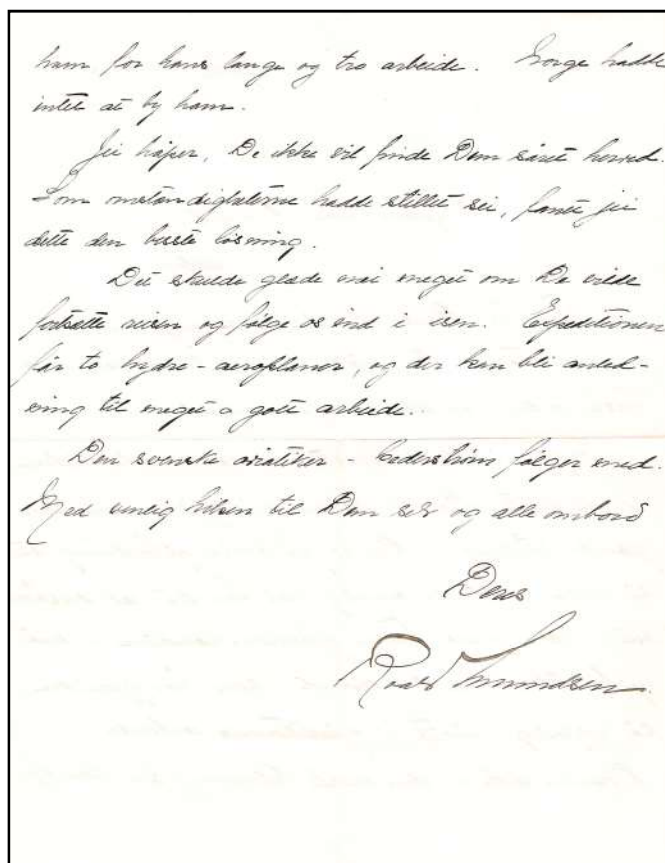 ham for hans lange og tro arbeide. Norge hadde
intet at by ham.
Jei håper, De ikke vil finde Dem såret herved.
Som omstændighæterne hadde stillet sei, fant jei
dette den beste løsning.
Det skulde glæde mei meget om De vilde
fortsætte reisen og følge os ind i isen. Expeditionen
får to hydro-aeroplaner, og der kan bli anled-
ning til meget a gott arbeide.
Den svenske aviatiker - Cederstrøm følger med.
Med venlig hilsen til Dem selv og alle ombord
Deres
Roald Amundsen.